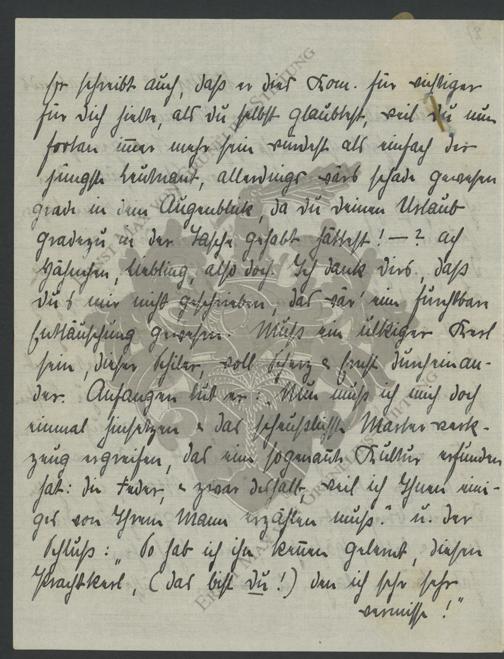 Er schreibt auch, daß er dies Kom. für wichtiger
für Dich hielte, als du selbst glaubtest, weil du nun
fortan immer mehr sein würdest als einfach der
jüngste Leutnant, allerdings wärs schade gewesen
grade in dem Augenblick, da du deinen Urlaub
gradezu in der Tasche gehabt hättest! — ? ach
Hähnchen, Liebling, also doch. Ich dank dirs, daß
du's mir nicht geschrieben, das wär eine furchtbare
Enttäuschung gewesen. Muß ein ulkiger Kerl
sein, dieser Schiler, voll Scherz & Ernst durcheinan-
der. Anfangen tut er: „Nun muß ich mich doch
einmal hinsetzen & das scheußlichste Marterwerk-
zeug ergreifen, das eine sogenante Kultur erfunden
hat: die Feder, & zwar deshalb, weil ich Ihnen eini-
ges von Ihrem Mann erzählen muß." u. der
Schluß: „So hab ich ihn kennen gelernt, diesen
Prachtkerl, (das bist du!) den ich sehr sehr
vermisse!"